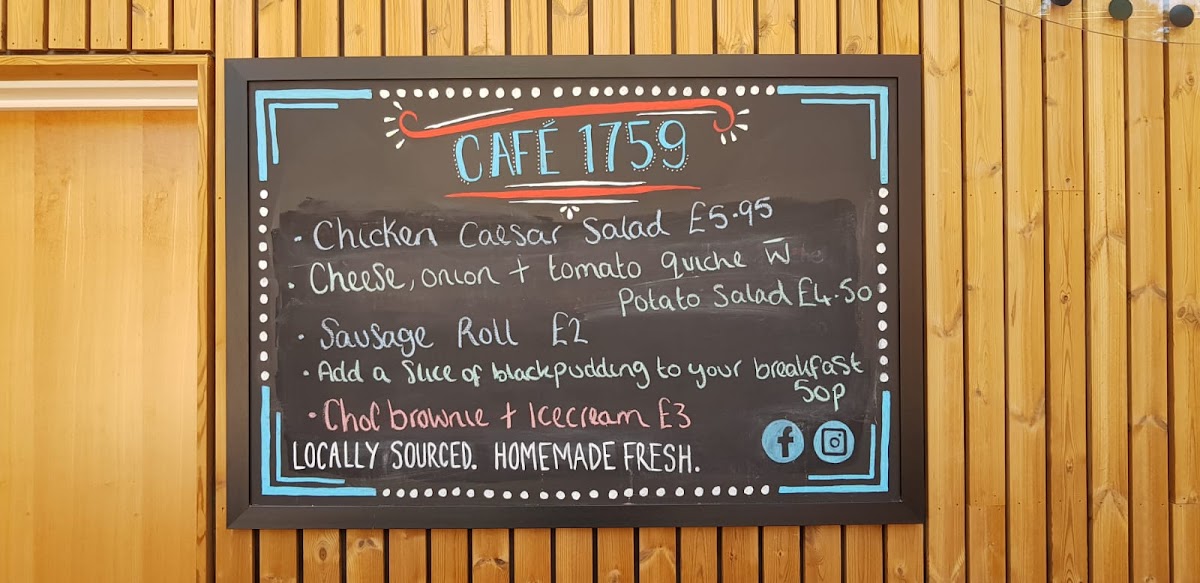 CAFÉ 1759
· Chicken Caesar Salad £5.95
· Cheese, onion + tomato quiche w
Potato Salad £4.50
· Sausage Roll £2
· Add a Slice of blackpudding to your breakfast
50p
· Choc brownie + Icecream £3
LOCALLY SOURCED. HOMEMADE FRESH.